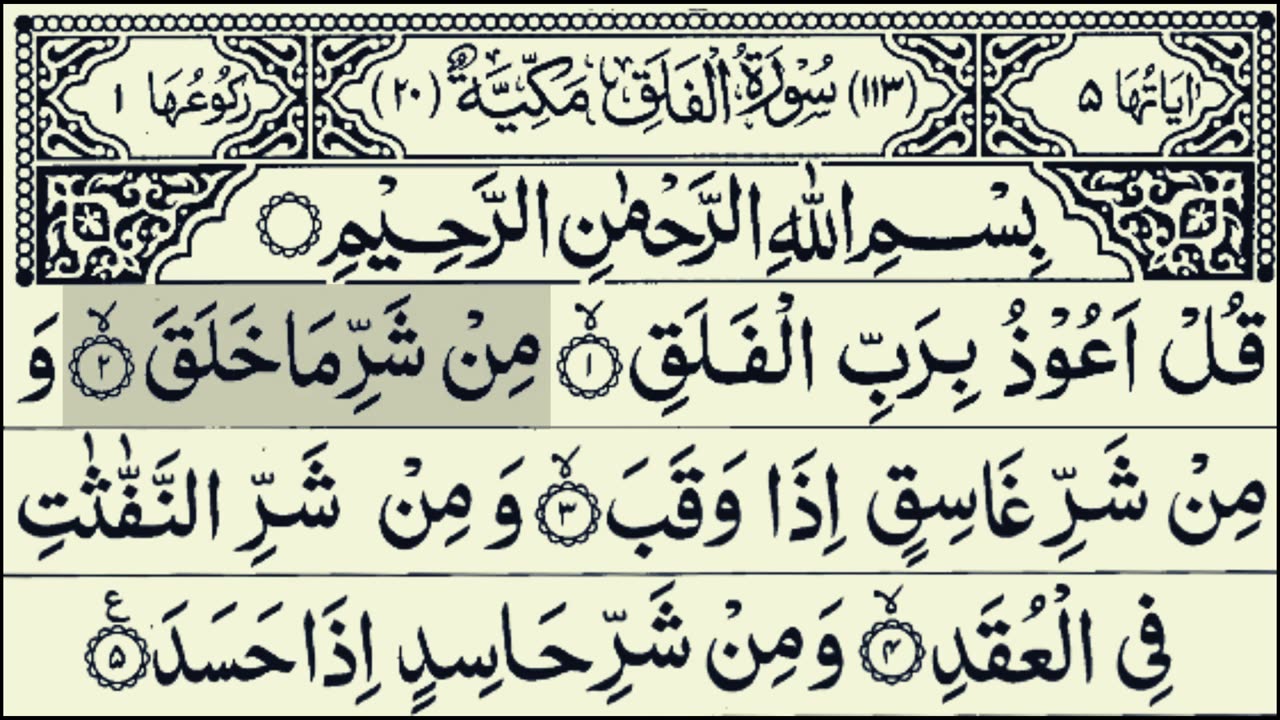 اٰیَاتُهَا ۵ (١١٣) سُوْرَةُ الْفَلَقِ مَكِّیَّةٌ (٢٠) رُكُوْعُهَا ١
بِسْمِ اللّٰهِ الرَّحْمٰنِ الرَّحِیْمِ
قُلْ اَعُوْذُ بِرَبِّ الْفَلَقِ ۙ﴿١﴾ مِنْ شَرِّ مَا خَلَقَ ۙ﴿٢﴾ وَ
مِنْ شَرِّ غَاسِقٍ اِذَا وَقَبَ ۙ﴿٣﴾ وَ مِنْ شَرِّ النَّفّٰثٰتِ
فِی الْعُقَدِ ۙ﴿۴﴾ وَ مِنْ شَرِّ حَاسِدٍ اِذَا حَسَدَ ﴿۵﴾ ع